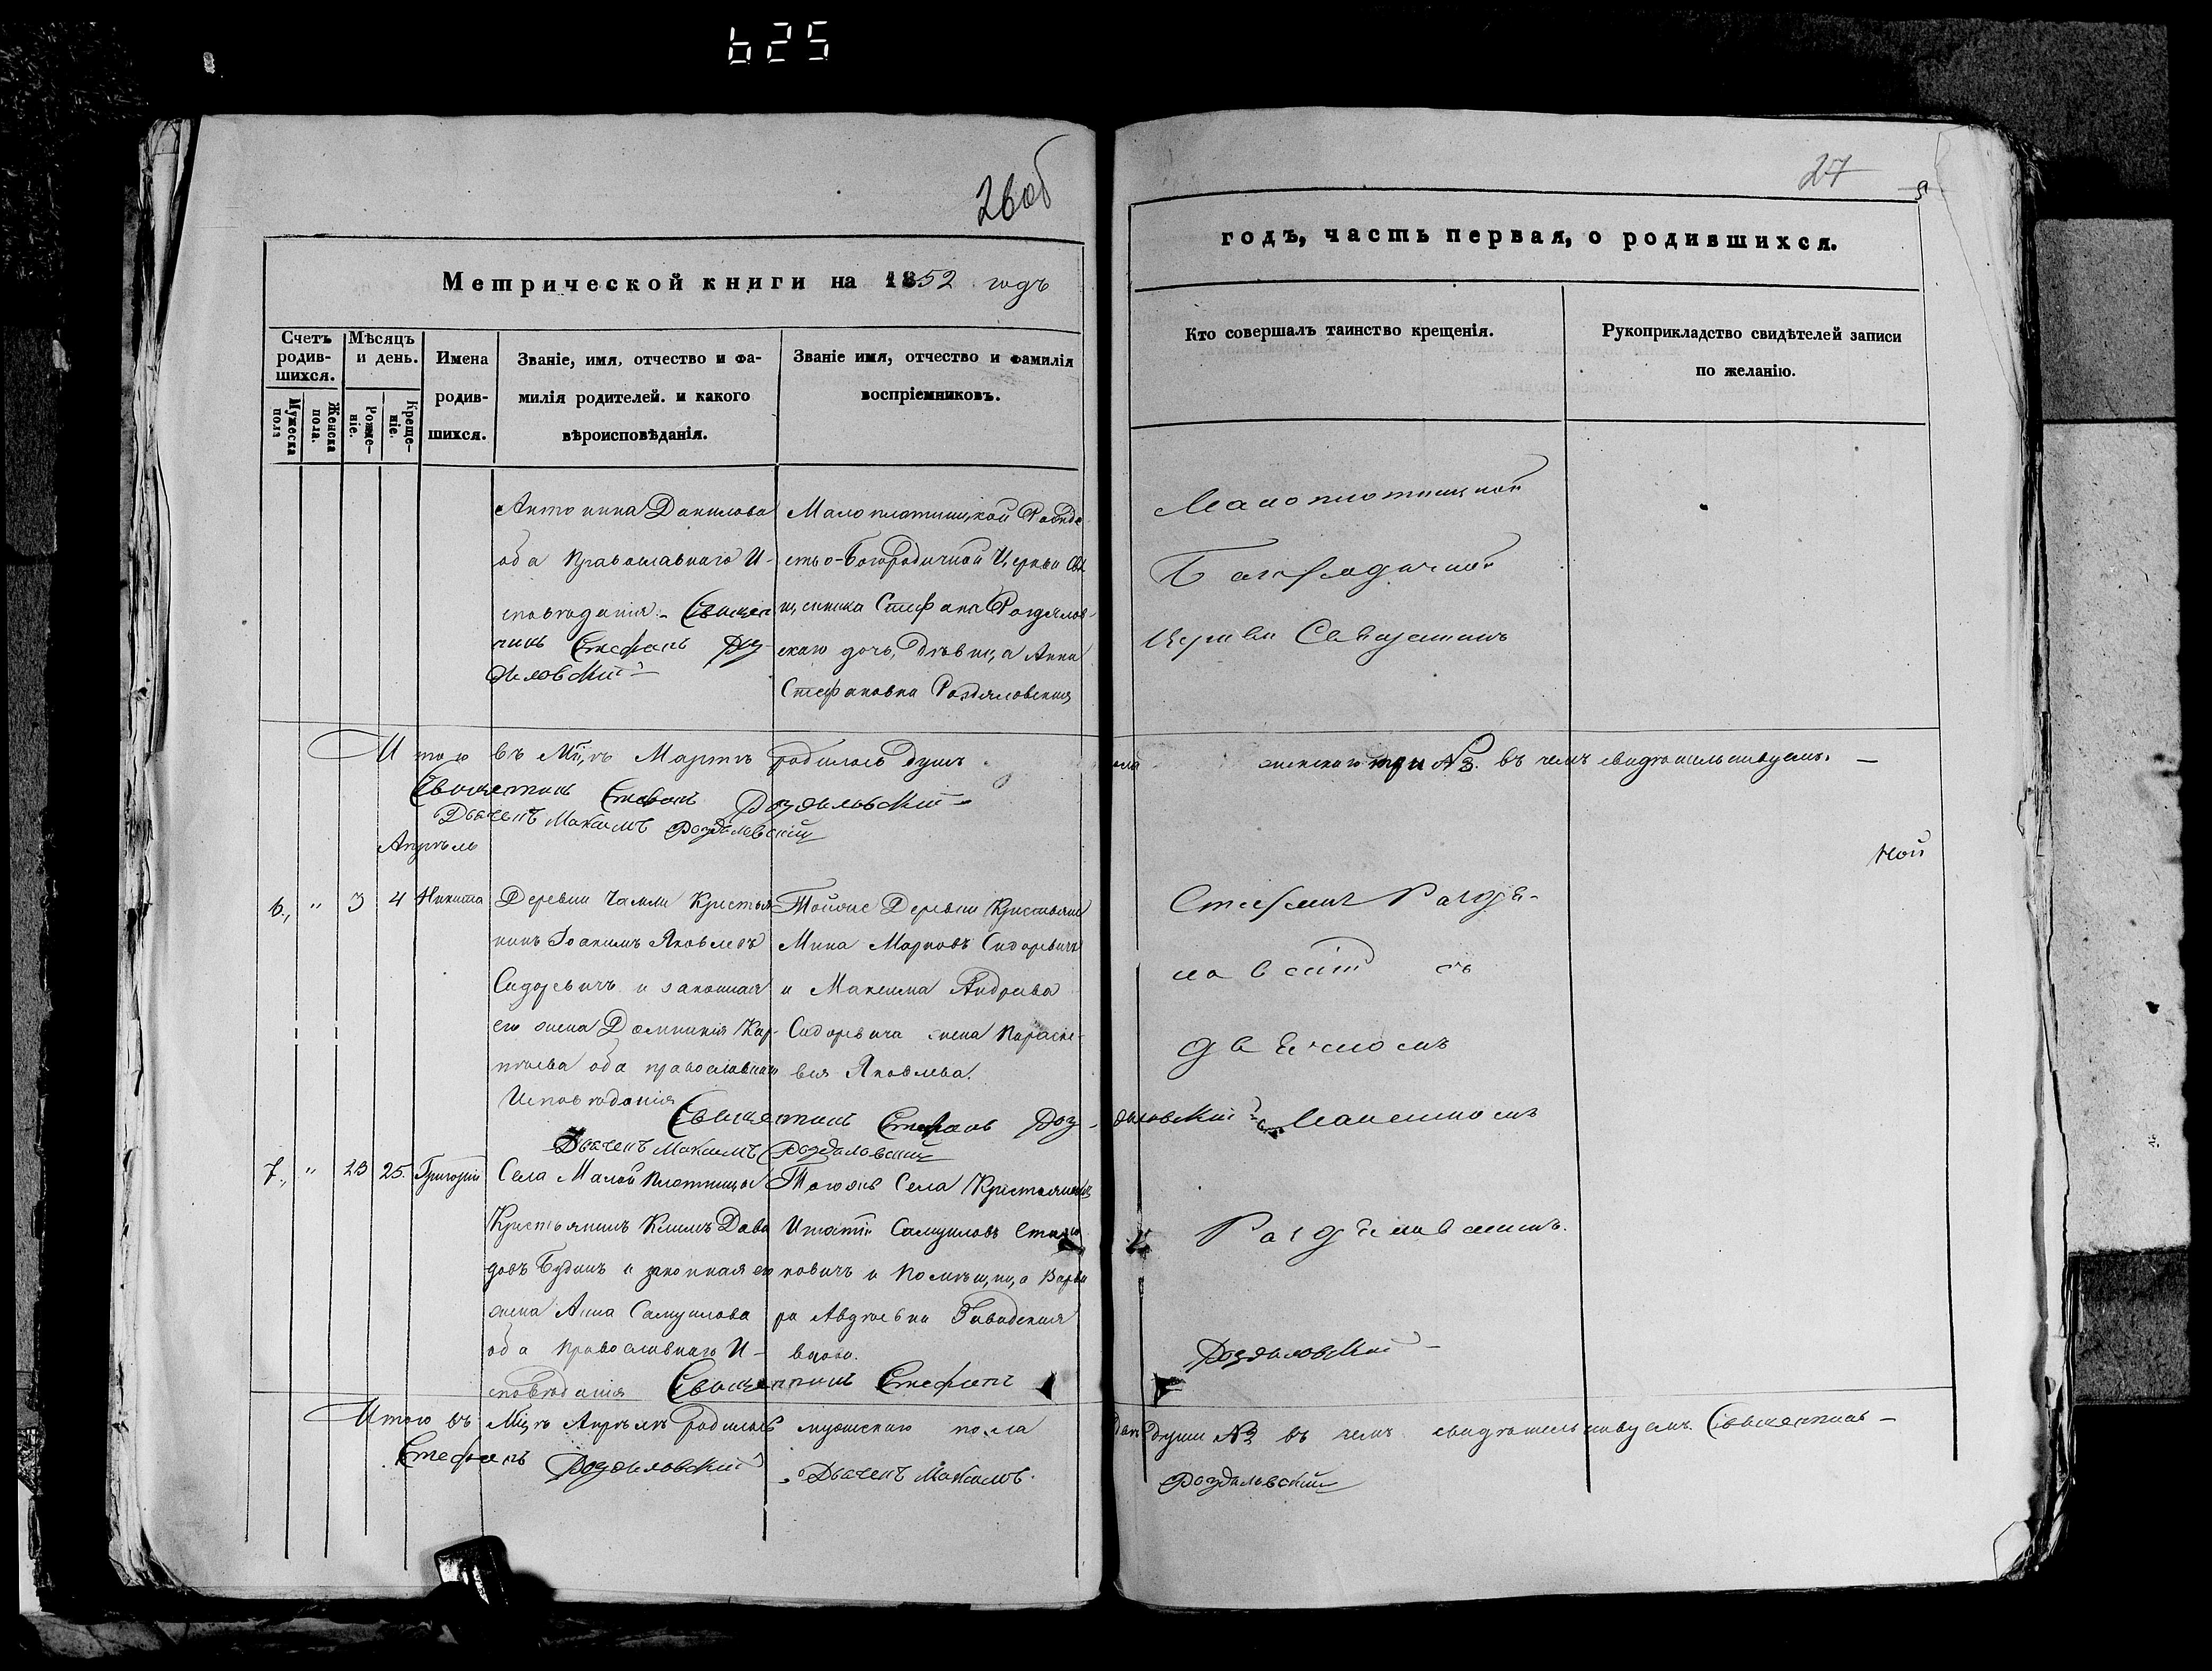 625
26об
Метрической книги на 1852 годъ
Счетъ родив-шихся.
Мѣсяцъ и день.
Мужеска пола
Женска пола.
Рожде-ніе.
Креще-ніе.
Имена
родив-
шихся.
Званіе, имя, отчество и фа-
милія родителей. и какого
вѣроисповѣданія.
Званіе имя, отчество и фамилія
воспріемниковъ.
Антонина Данилова
оба Православнаго И-
сповѣданія. Священ
никъ Стефанъ Роз
дяловскій
Малоплотницкой Рожде
ство-Богородичной Церкви Свя
щенника Стефана Роздялов-
скаго дочь, Дѣвица Анна
Стефановна Роздяловская
Итого въ Мцѣ Мартѣ родилось душъ
Священникъ Стефанъ Роздяловскій
Дьячекъ Максимъ Роздяловскій
Апрѣль
6., " 3 4 Никита
Деревни Чамли Крестья
нинъ Іоакимъ Яковлевъ
Сидоревичъ и законная
его жена Домникія Кар-
пова оба православнаго
Исповѣданія
Тойже Деревни Крестьянинъ
Мина Марковъ Сидоревичъ
и Максима Андреева
Сидоревича жена Параске-
вія Яковлева.
Священникъ Стефанъ Роз-дяловскій
Дьячекъ Максимъ Роздяловскій
7., " 23 25. Григорій
Села Малой Плотницы
Крестьянинъ Климъ Дави
довъ Будникъ и законная его
жена Анна Самуилова
оба Православнаго И-
сповѣданія
Тогожъ Села Крестьянинъ
Игнатій Самуиловъ
ковичъ и Помѣщица Варва
ра Авдѣевна Завадская
вдова.
Священникъ Стефанъ
Итого въ Мцѣ Апрѣлѣ родилось мужескаго пола
Стефанъ Роздяловскій Дьячекъ Максимъ
27
годъ, часть первая, о родившихся.
Кто совершалъ таинство крещенія.
Рукоприкладство свидѣтелей записи
по желанію.
Малоплотницкой
Богородичной
Церкви Священникъ
женскаго три №3. въ чемъ свидѣтельствуемъ.
Стефанъ Роздя-
ловскій съ
дьячкомъ
Максимомъ
Роздяловскимъ.
Роздяловскій
души №2 въ чемъ свидѣтельствуемъ. Священникъ
Роздяловскій